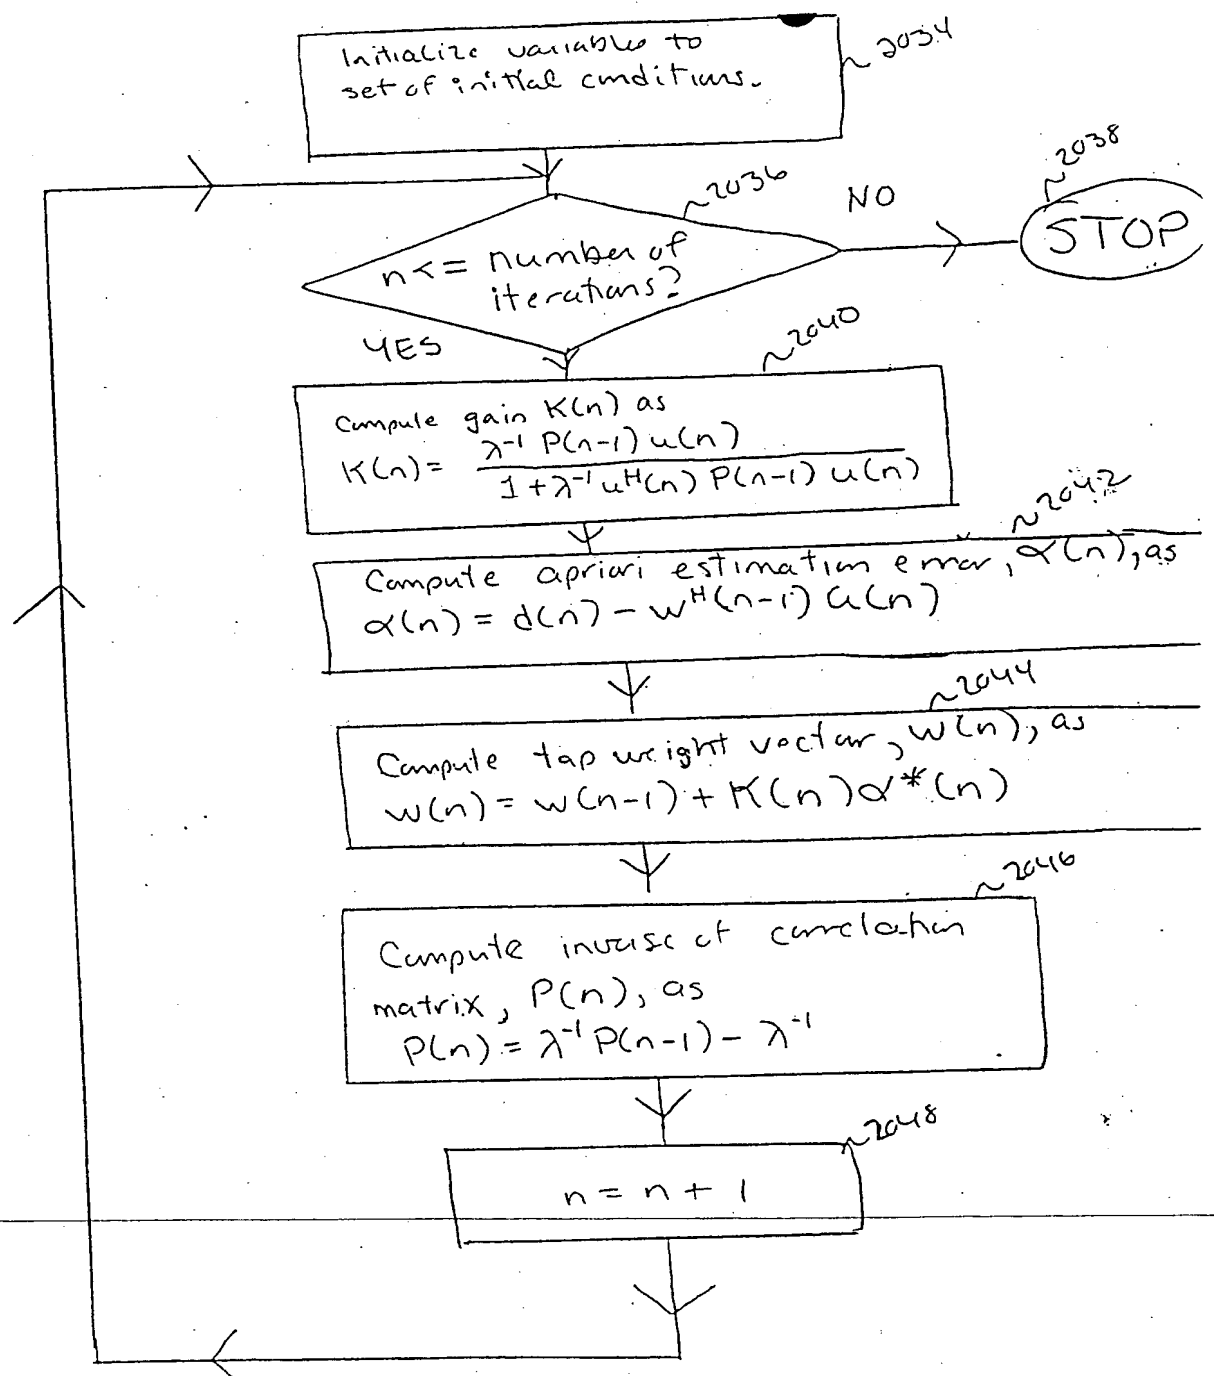 Initialize variables to
set of initial conditions.
2034
2036
NO
2038
STOP
n <= number of
iterations?
YES
2040
Compute gain K(n) as
K(n) = λ⁻¹ P(n-1) u(n) / 1 + λ⁻¹ uᴴ(n) P(n-1) u(n)
2042
Compute apriori estimation error, α(n), as
α(n) = d(n) - wᴴ(n-1) u(n)
2044
Compute tap weight vector, w(n), as
w(n) = w(n-1) + K(n) α*(n)
2046
Compute inverse of correlation
matrix, P(n), as
P(n) = λ⁻¹ P(n-1) - λ⁻¹
2048
n = n + 1